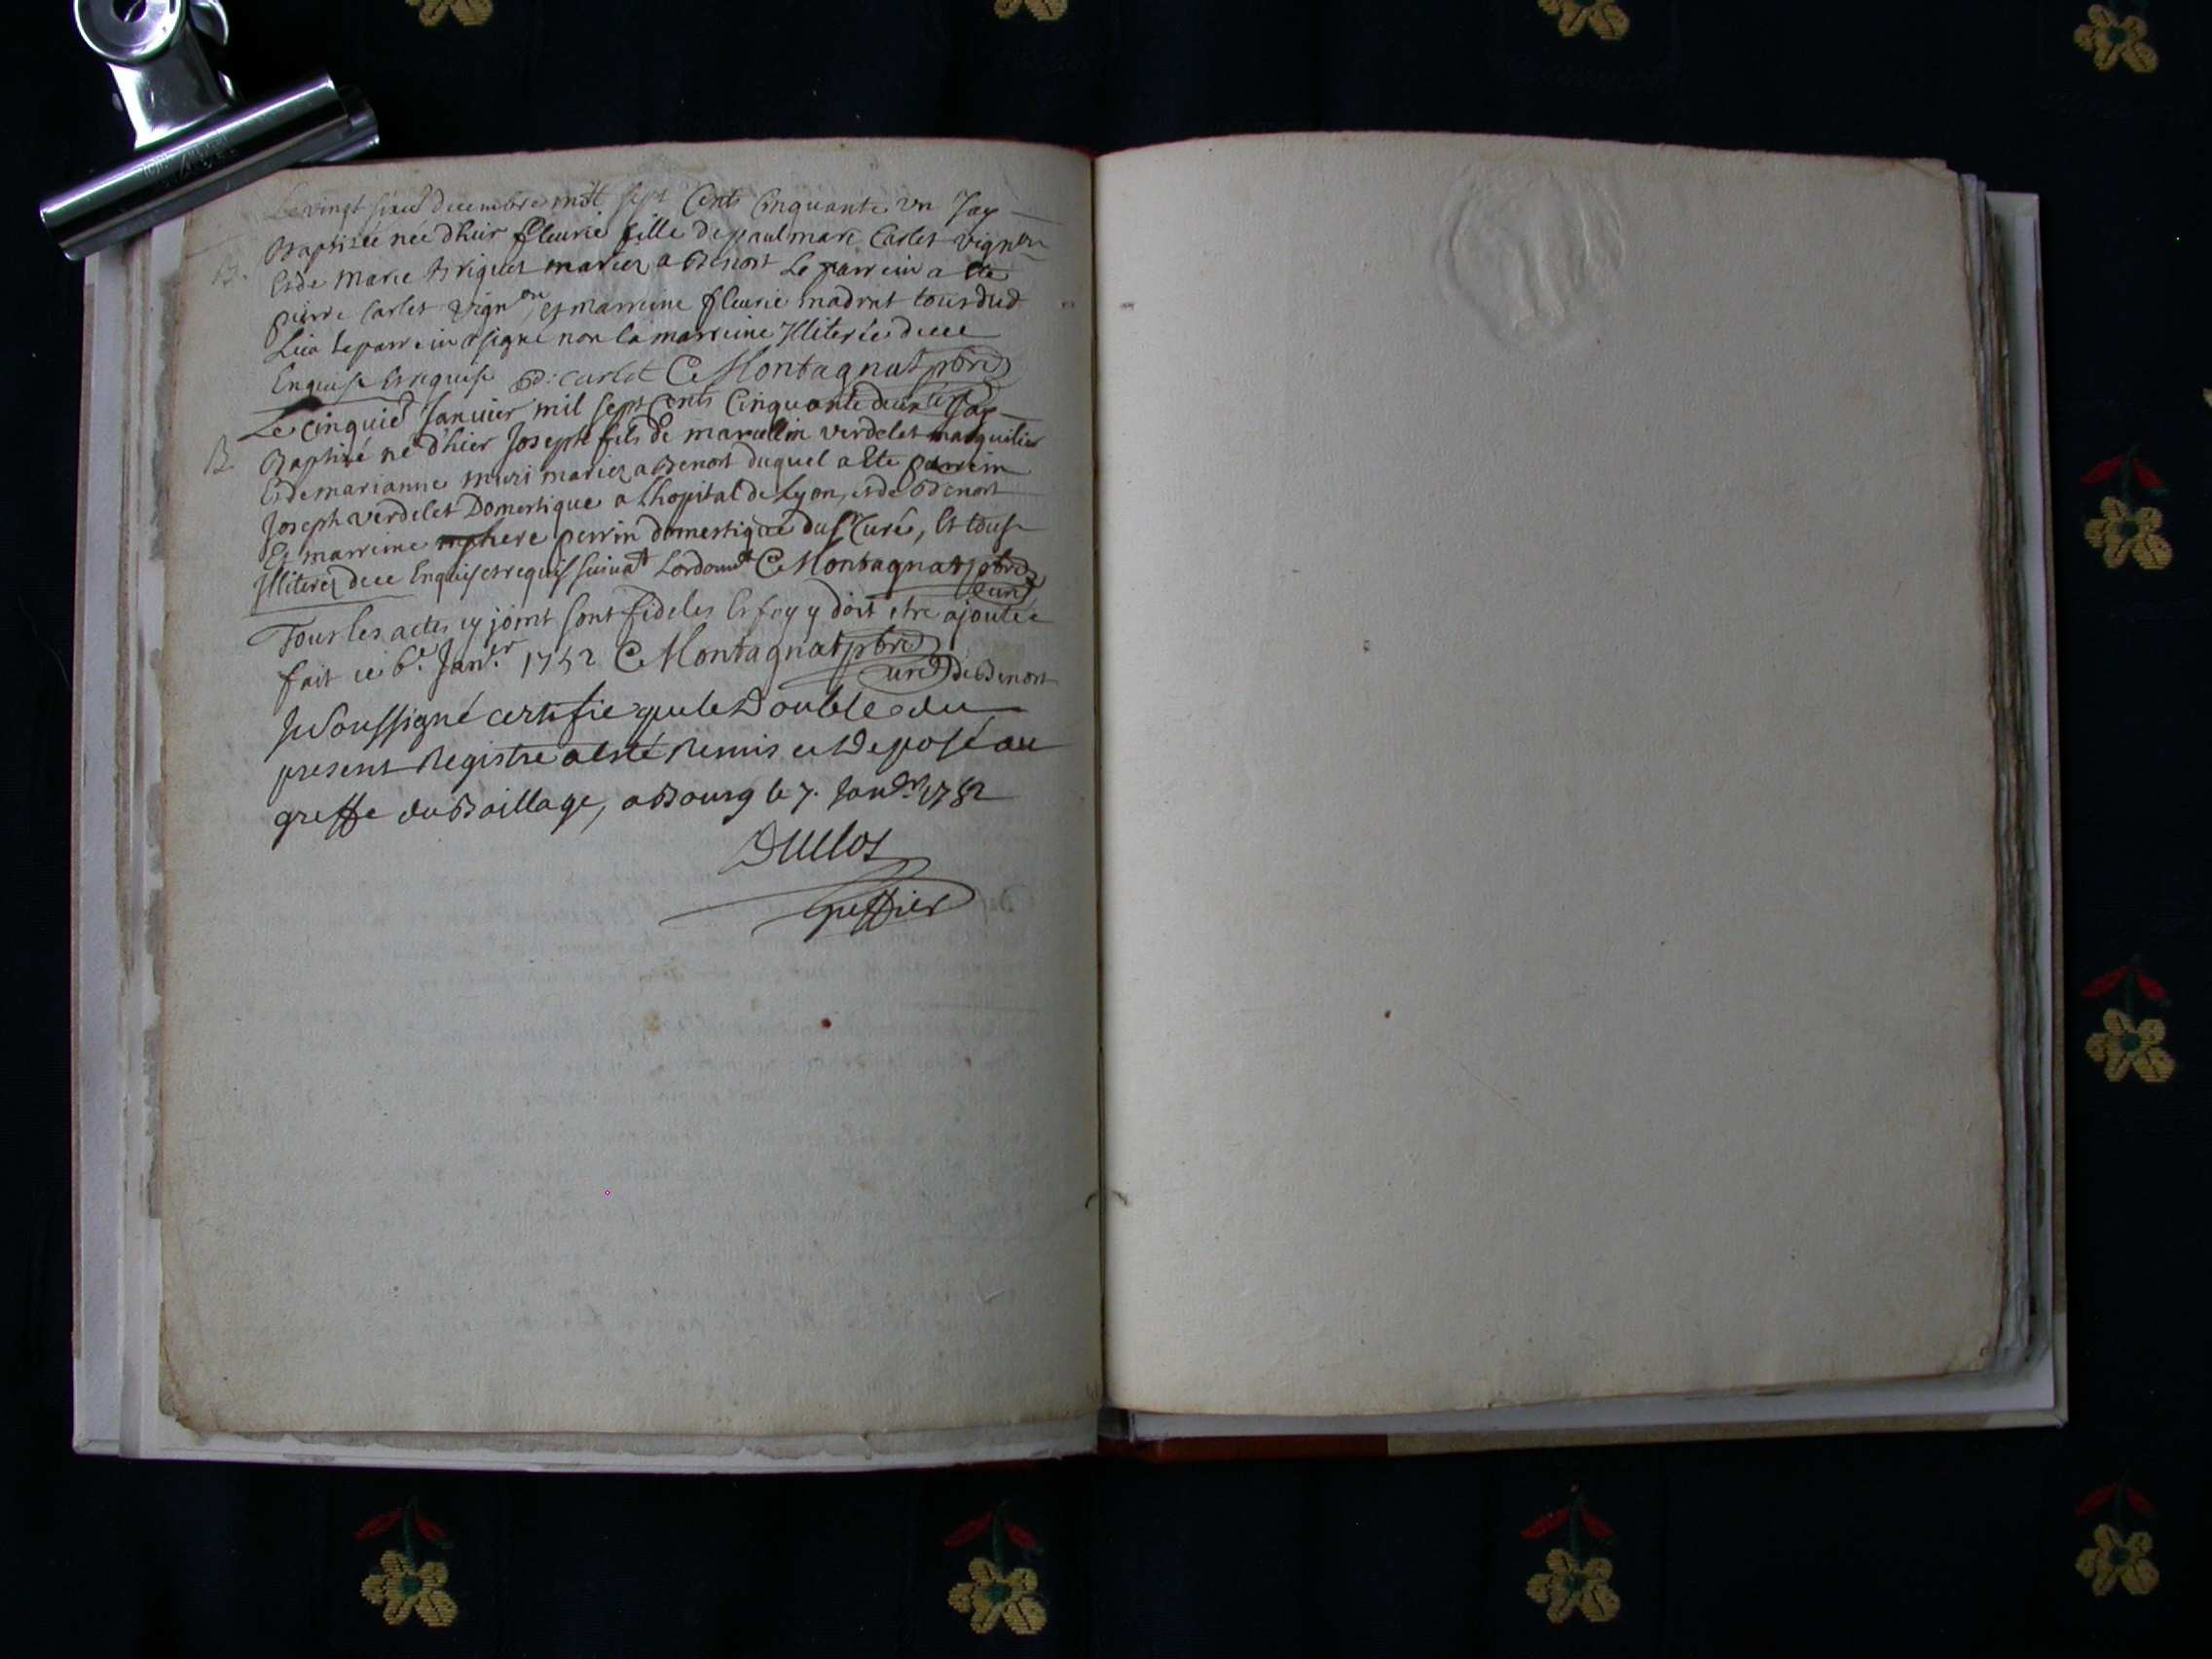 Le vingt sixe decembre mill sept Cents Cinquante un Jay
B. Baptisée née dhier fleurie fille de paul marc Carlet vignon
Et de Marie mariez a Benost Le parrein a ete
pierre Carlet vignon, Et marreine fleurie madrut tous dud
Lieu Le parrein a signé non la marreine Illiterée de ce
Enquise Et requise p: carlet C Montagnat pbre
curé
Le cinquie Janvier mil sept Cents Cinquante deux Jay
B. Baptisé né dhier Joseph fils de marcellin verdelet
Et de marianne muri mariez a Benost duquel a Ete parrein
Joseph verdelet Domestique a Lhopital de Lyon, et de Benost
Et marreine perrin domestique du sr Curé, Et tous
Illiterez de ce Enquis et requis suivat Lordonnce C Montagnat pbre
curé
Tous les actes cy joint sont fideles Et foy y doit etre ajoutée
fait ce 6e Janer 1752 C Montagnat pbre
curé de Benost
Je soussigné certifie que le Double du
present Registre a esté Remis et Deposé au
greffe du Baillage, a Bourg le 7. Janer 1752
Duclos
greffier